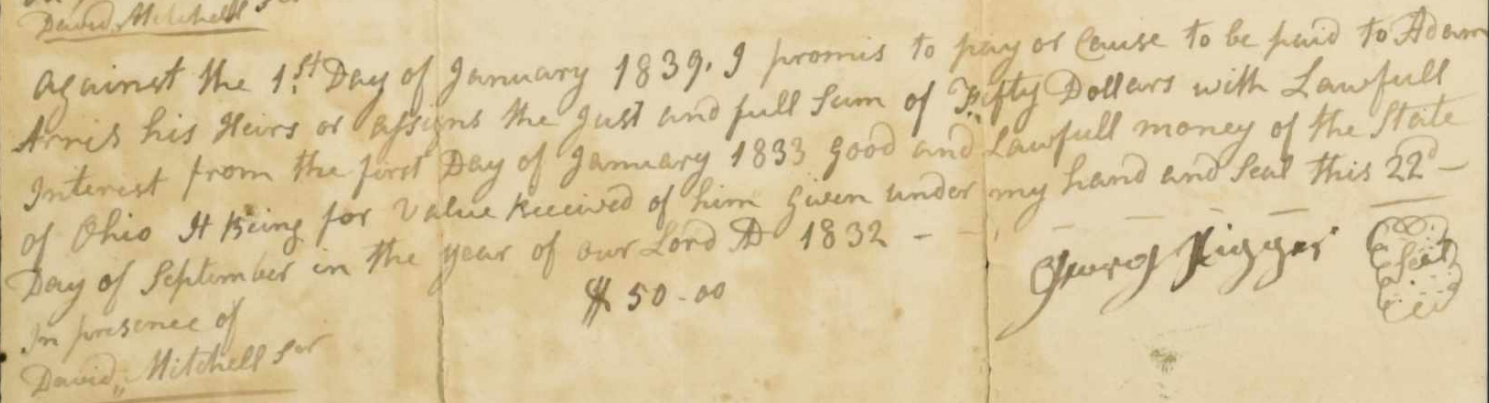 David Mitchell Ser
Against the 1st Day of January 1839. I promis to pay or Cause to be paid to Adam
Arnis his Heirs or assigns the Just and full Sum of Fifty Dollars with Lawfull
Interest from the first Day of January 1833 good and Lawfull money of the State
of Ohio It Being for Value Received of him Given under my hand and Seal this 22d —
Day of September in the year of our Lord AD 1832 —
$50-00
In presence of
David Mitchell Ser
Seal